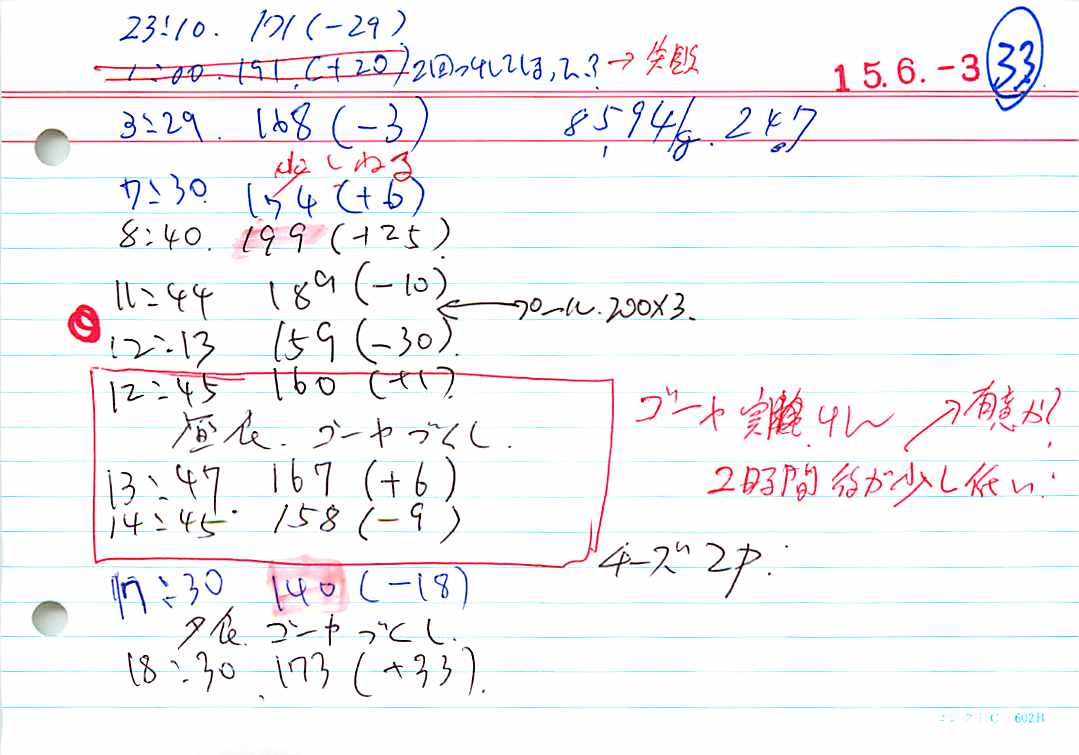 23:10. 171(-29)
1:00. 191(+20) 2回 → 失敗
15.6.-3 33
3:29. 168(-3) 8594歩. 247
7:30 174(+6)
8:40. 199(+25)
11:44 189(-10)
プール. 200×3.
12:13 159(-30).
12:45 160(+1)
昼食. ゴーヤづくし.
ゴーヤ実験 → 有意か?
13:47 167(+6)
2時間後が少し低い.
14:45 158(-9)
チーズ2P.
17:30 140(-18)
夕食. ゴーヤづくし.
18:30 173(+33).
C 602B